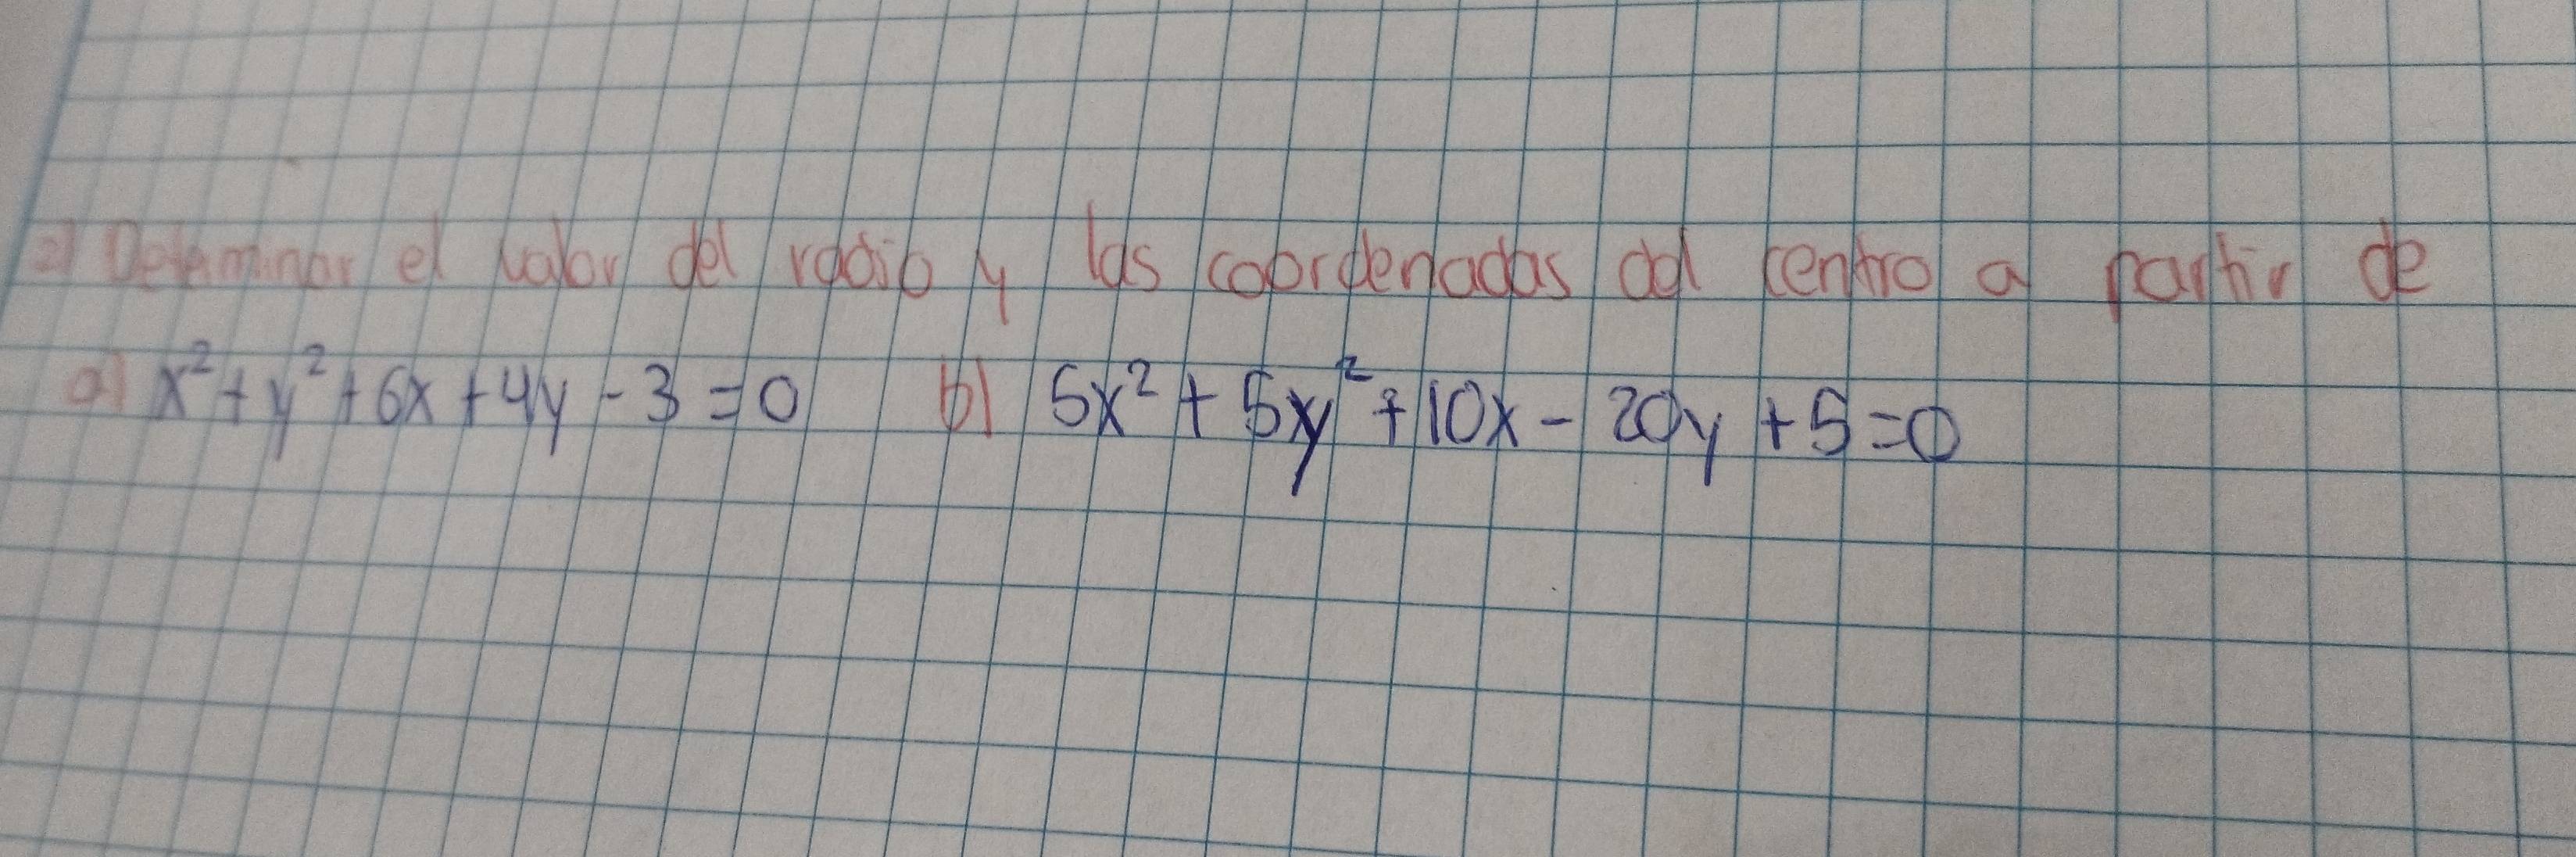 2) Determinar el valor del radio y las coordenadas del centro a partir de
a) x² + y² + 6x + 4y - 3 = 0 b) 5x² + 5y² + 10x - 20y + 5 = 0